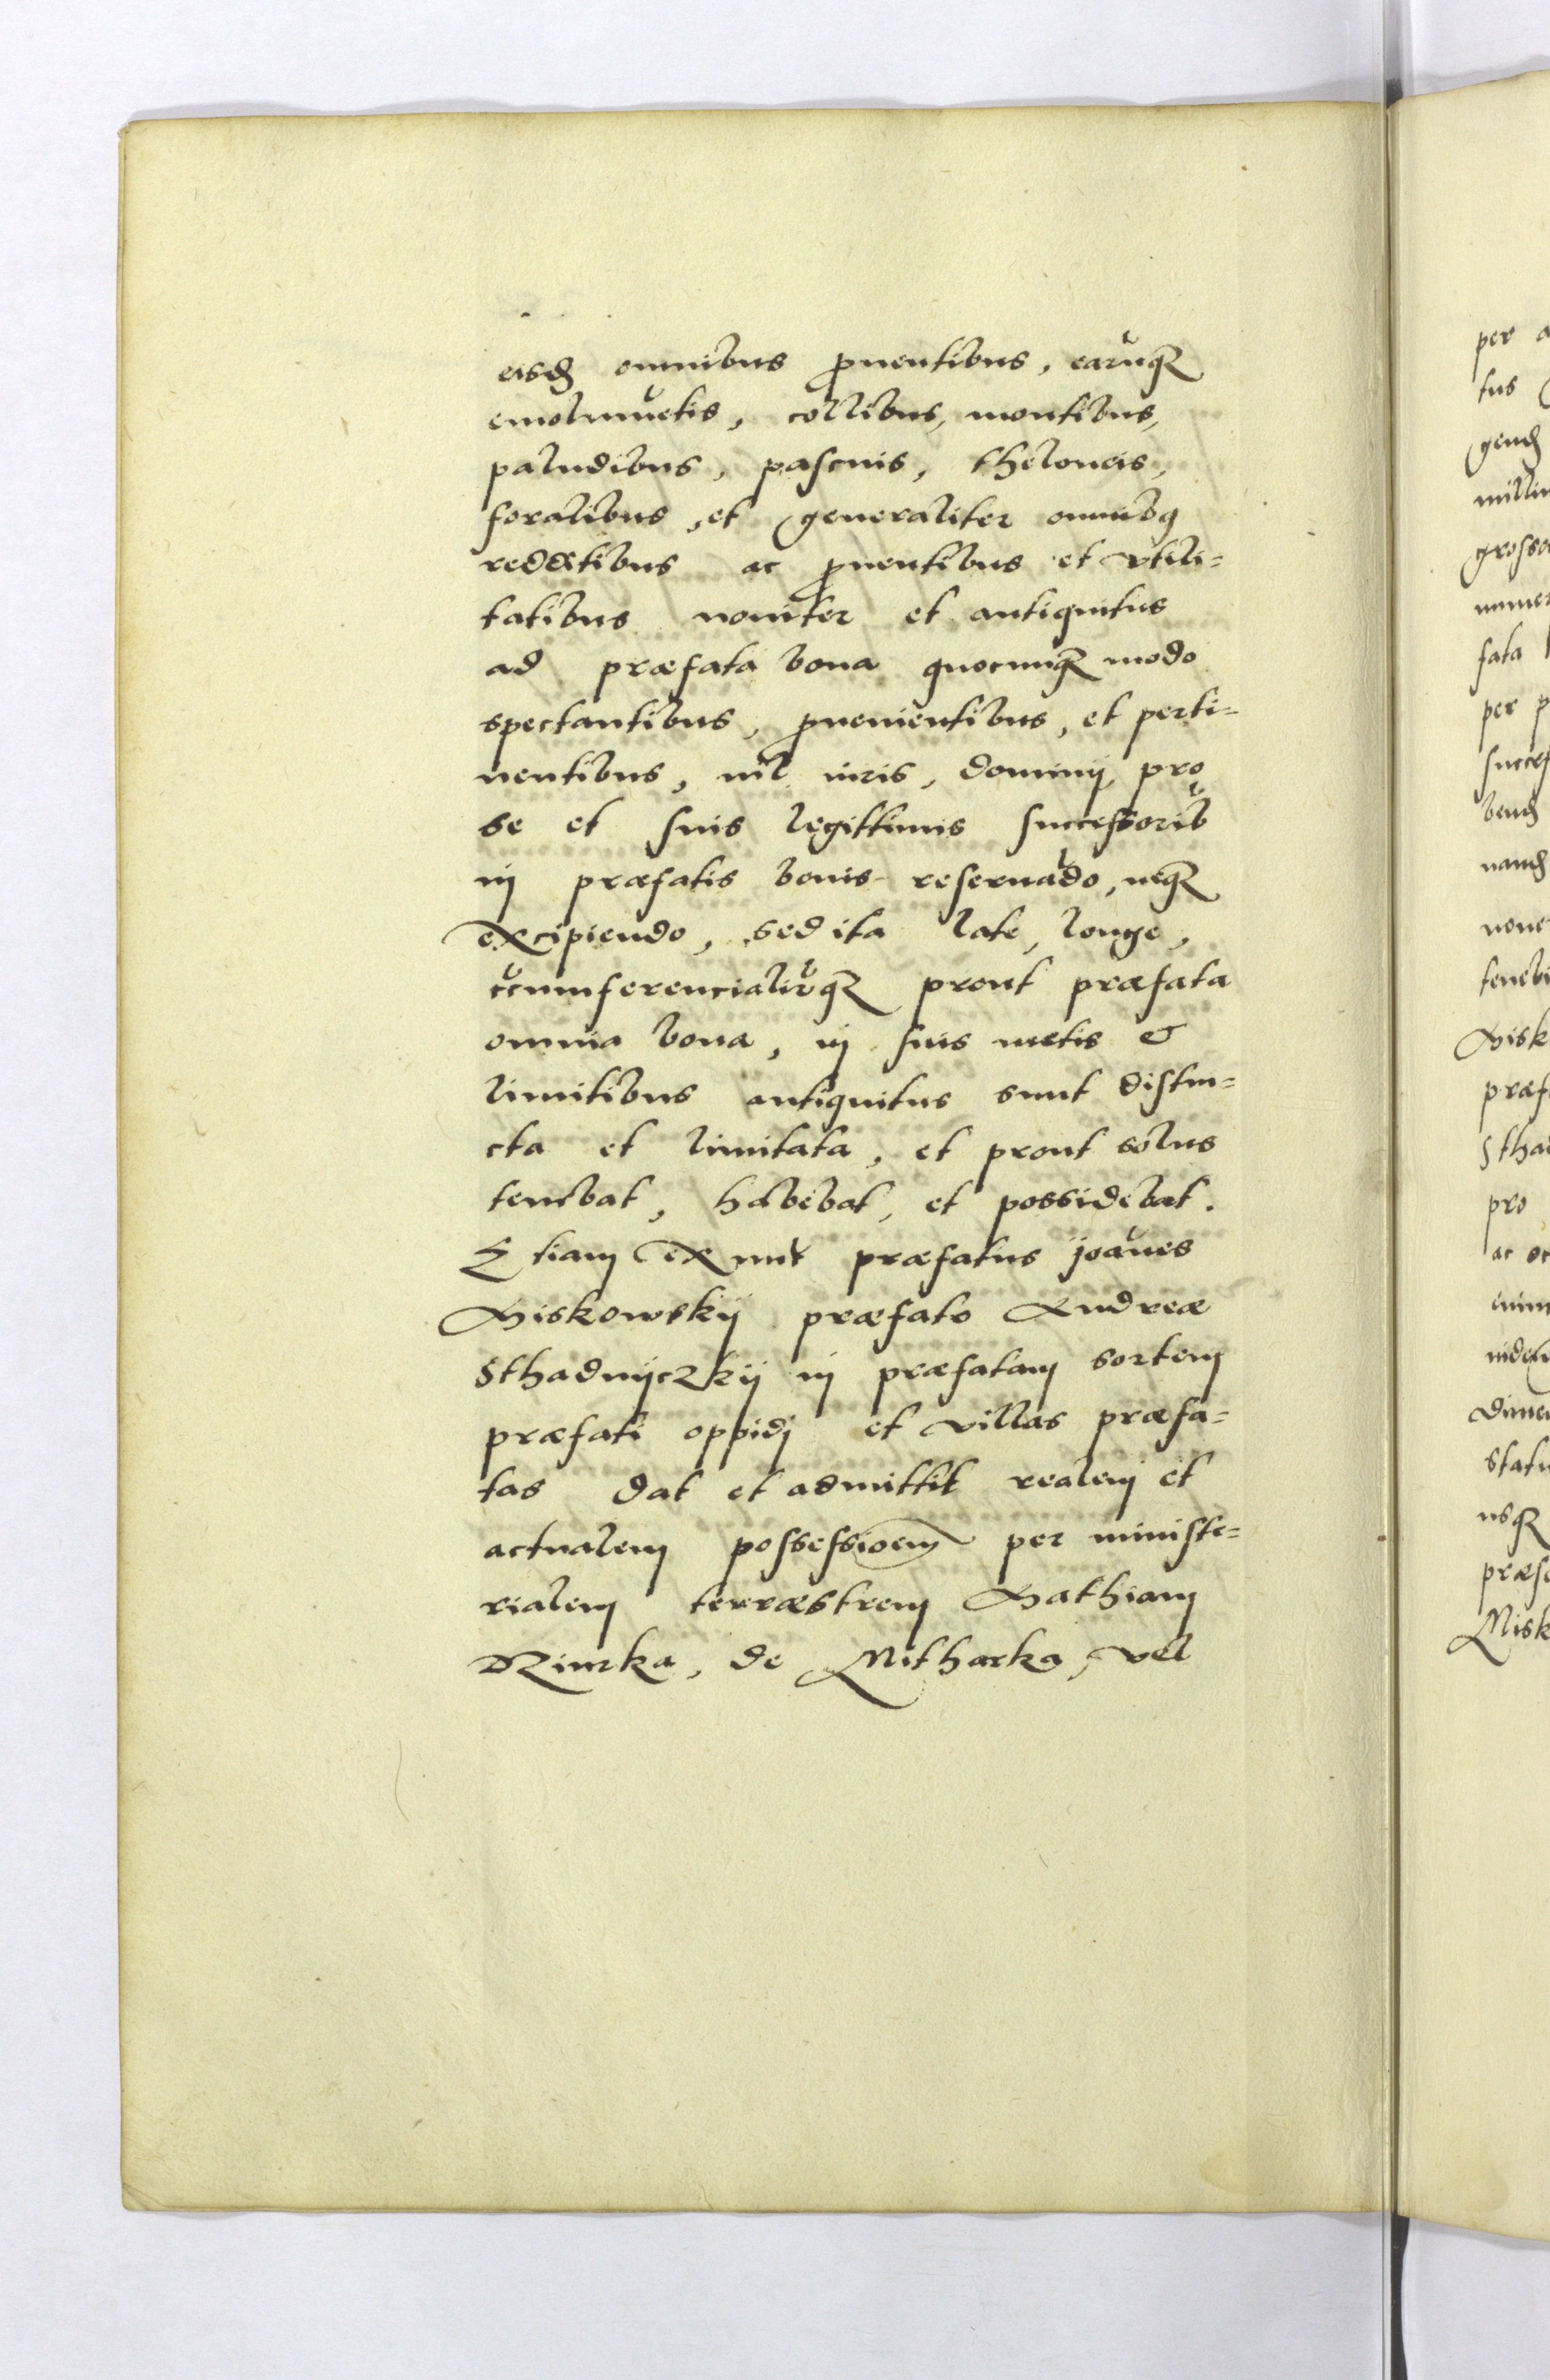 eisđ omnibus ꝓuentibus, earūqꝫ
emolumētis, collibus, montibus,
paludibus, pascuis, theloneis,
foralibus, et generaliter omnibꝯ
redditibus ac ꝓuentibus et vtili=
tatibus nouiter et antiquitus
ad præfata bona quocunqꝫ modo
spectantibus, ꝓuenientibus, et perti=
nentibus, nil iuris, dominij, pro
se et suis legittimis successorib⁹
in præfatis bonis reseruādo, neqꝫ
excipiendo, sed ita late, longe,
c̄cumferencialit̄qꝫ prout præfata
omnia bona, in suis metis &
limitibus antiquitus sunt distin=
cta et limitata, et prout solus
tenebat, habebat, et possidebat.
Etiam ex nūc præfatus joānes
Miskowskij præfato Andreæ
Sthadnijczkij in præfatam sortem
præfati oppidj et villas præfa=
tas dat et admittit realem et
actualem possessioem̄ per ministe=
rialem terræstrem Mathiam
Rimrka, de Mitharka, vel
per a
tus
gend
millin
grosso
numer
fata
per p
succes
bend
nand
nouer
tenebi
Misk
præf
Stha
pro
ac
enim
uidem
Dimen
statu
usqꝫ
præf
Misk